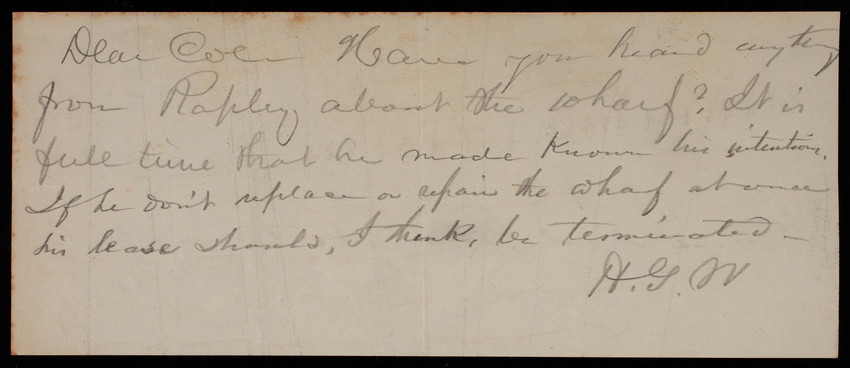 Dear Col Have you heard anything
from Rapley, about the wharf? It is
full time that he made known his intentions.
If he don't replace or repair the wharf at once
his lease should, I think, be terminated -
H.G.W